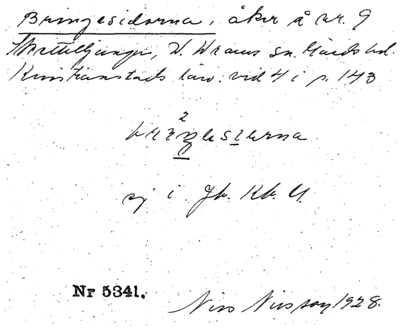 Bringesidorna, åker å nr. 9
Mettelljunga, V. Wrams sn. Gärds hd.
Kristianstads län. vid 4 i p. 143
ej i Jb. Kb. U.
Nr 5341.
Nils Nilsson 1928.